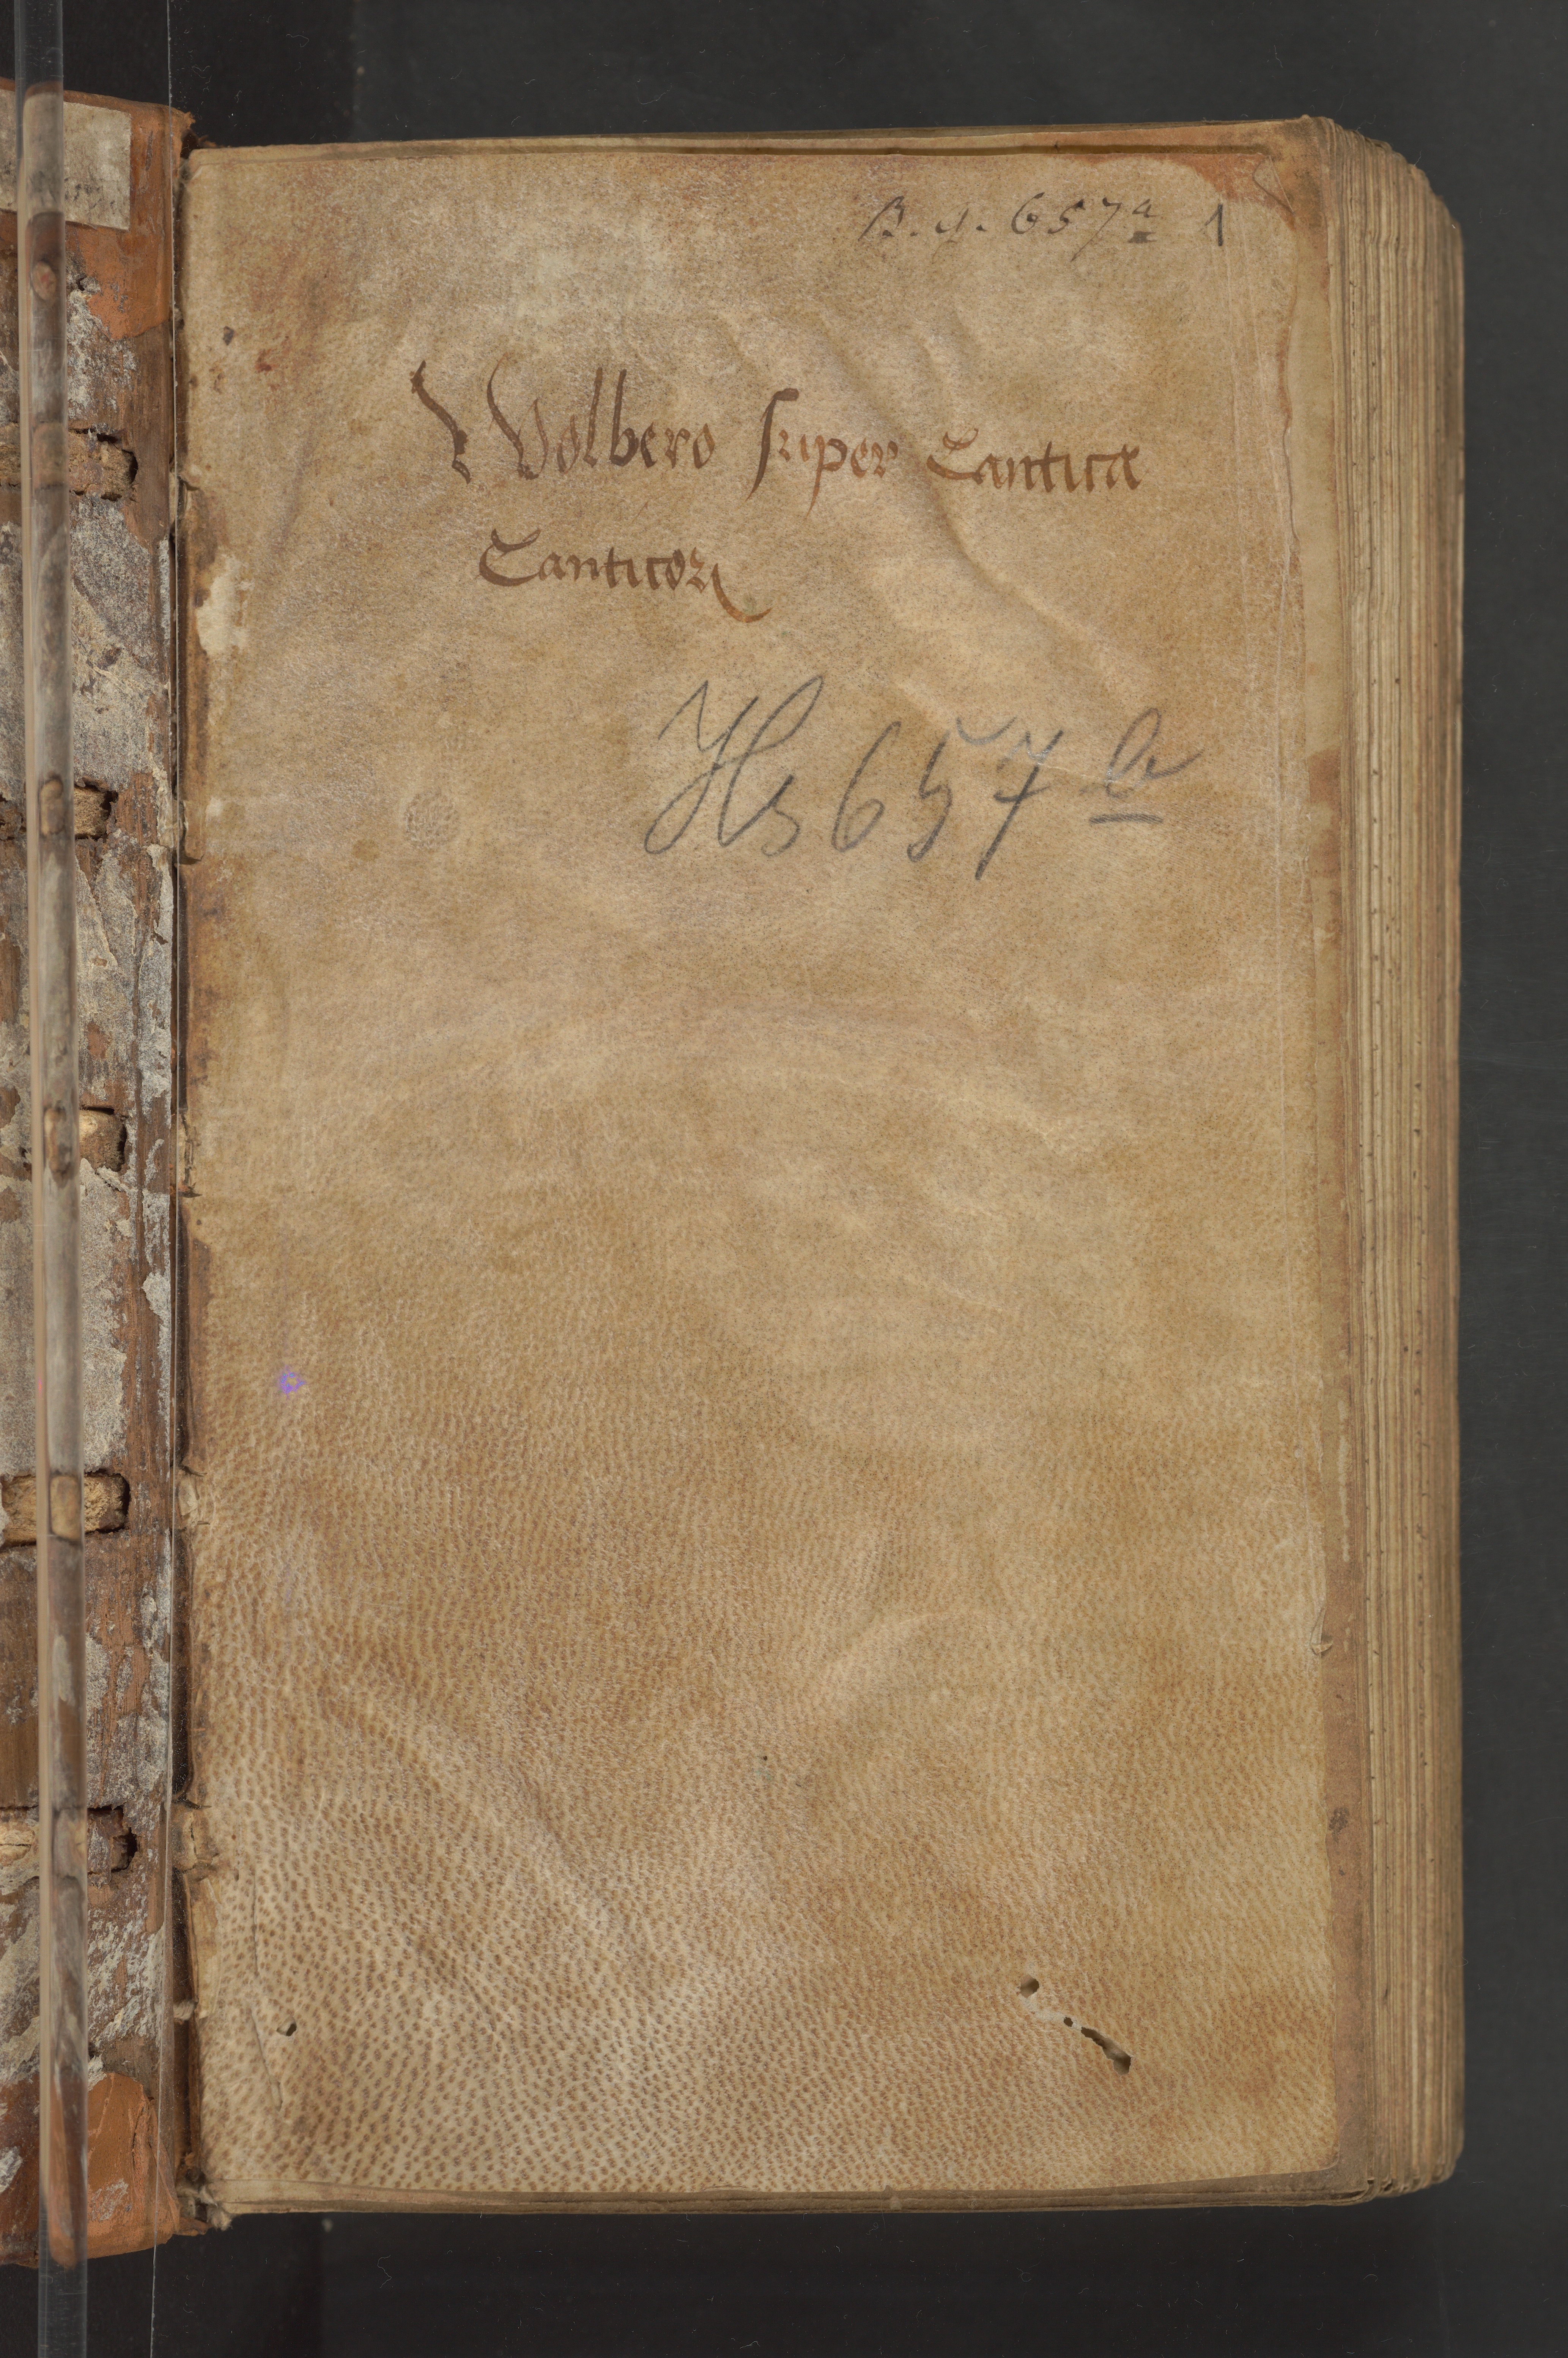 B. g. 657a 1
Wolbero super Cantica
Canticoꝝ
Hs 657 b